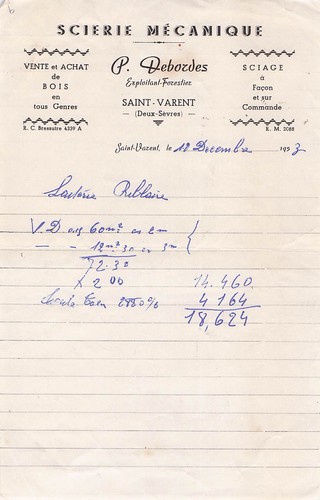 SCIERIE MÉCANIQUE
VENTE et ACHAT
de
BOIS
en
tous Genres
R. C. Bressuire 4339 A
P. Debordes
Exploitant-Forestier
SAINT-VARENT
(Deux-Sèvres)
SCIAGE
à
Façon
et sur
Commande
R. M. 2088
Saint-Varent, le 18 Decembre 1953
V D 60 m² en 2m
— — 12 m² 30 en 3m
72.30
200
14.460
2880% 4 164
18,624